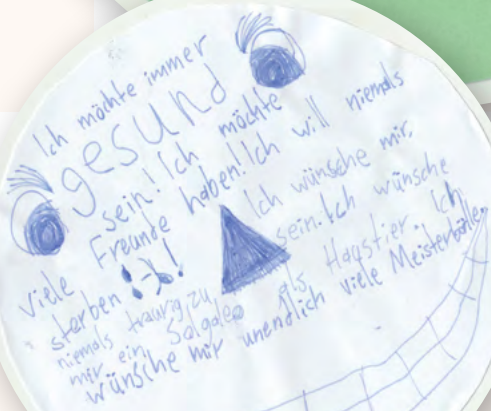 Ich möchte immer
gesund
sein! Ich möchte
viele Freunde haben! Ich will niemals
sterben !:-)! Ich wünsche mir,
niemals traurig zu sein. Ich wünsche
mir ein Solgaleo als Haustier. Ich
wünsche mir unendlich viele Meisterbälle.